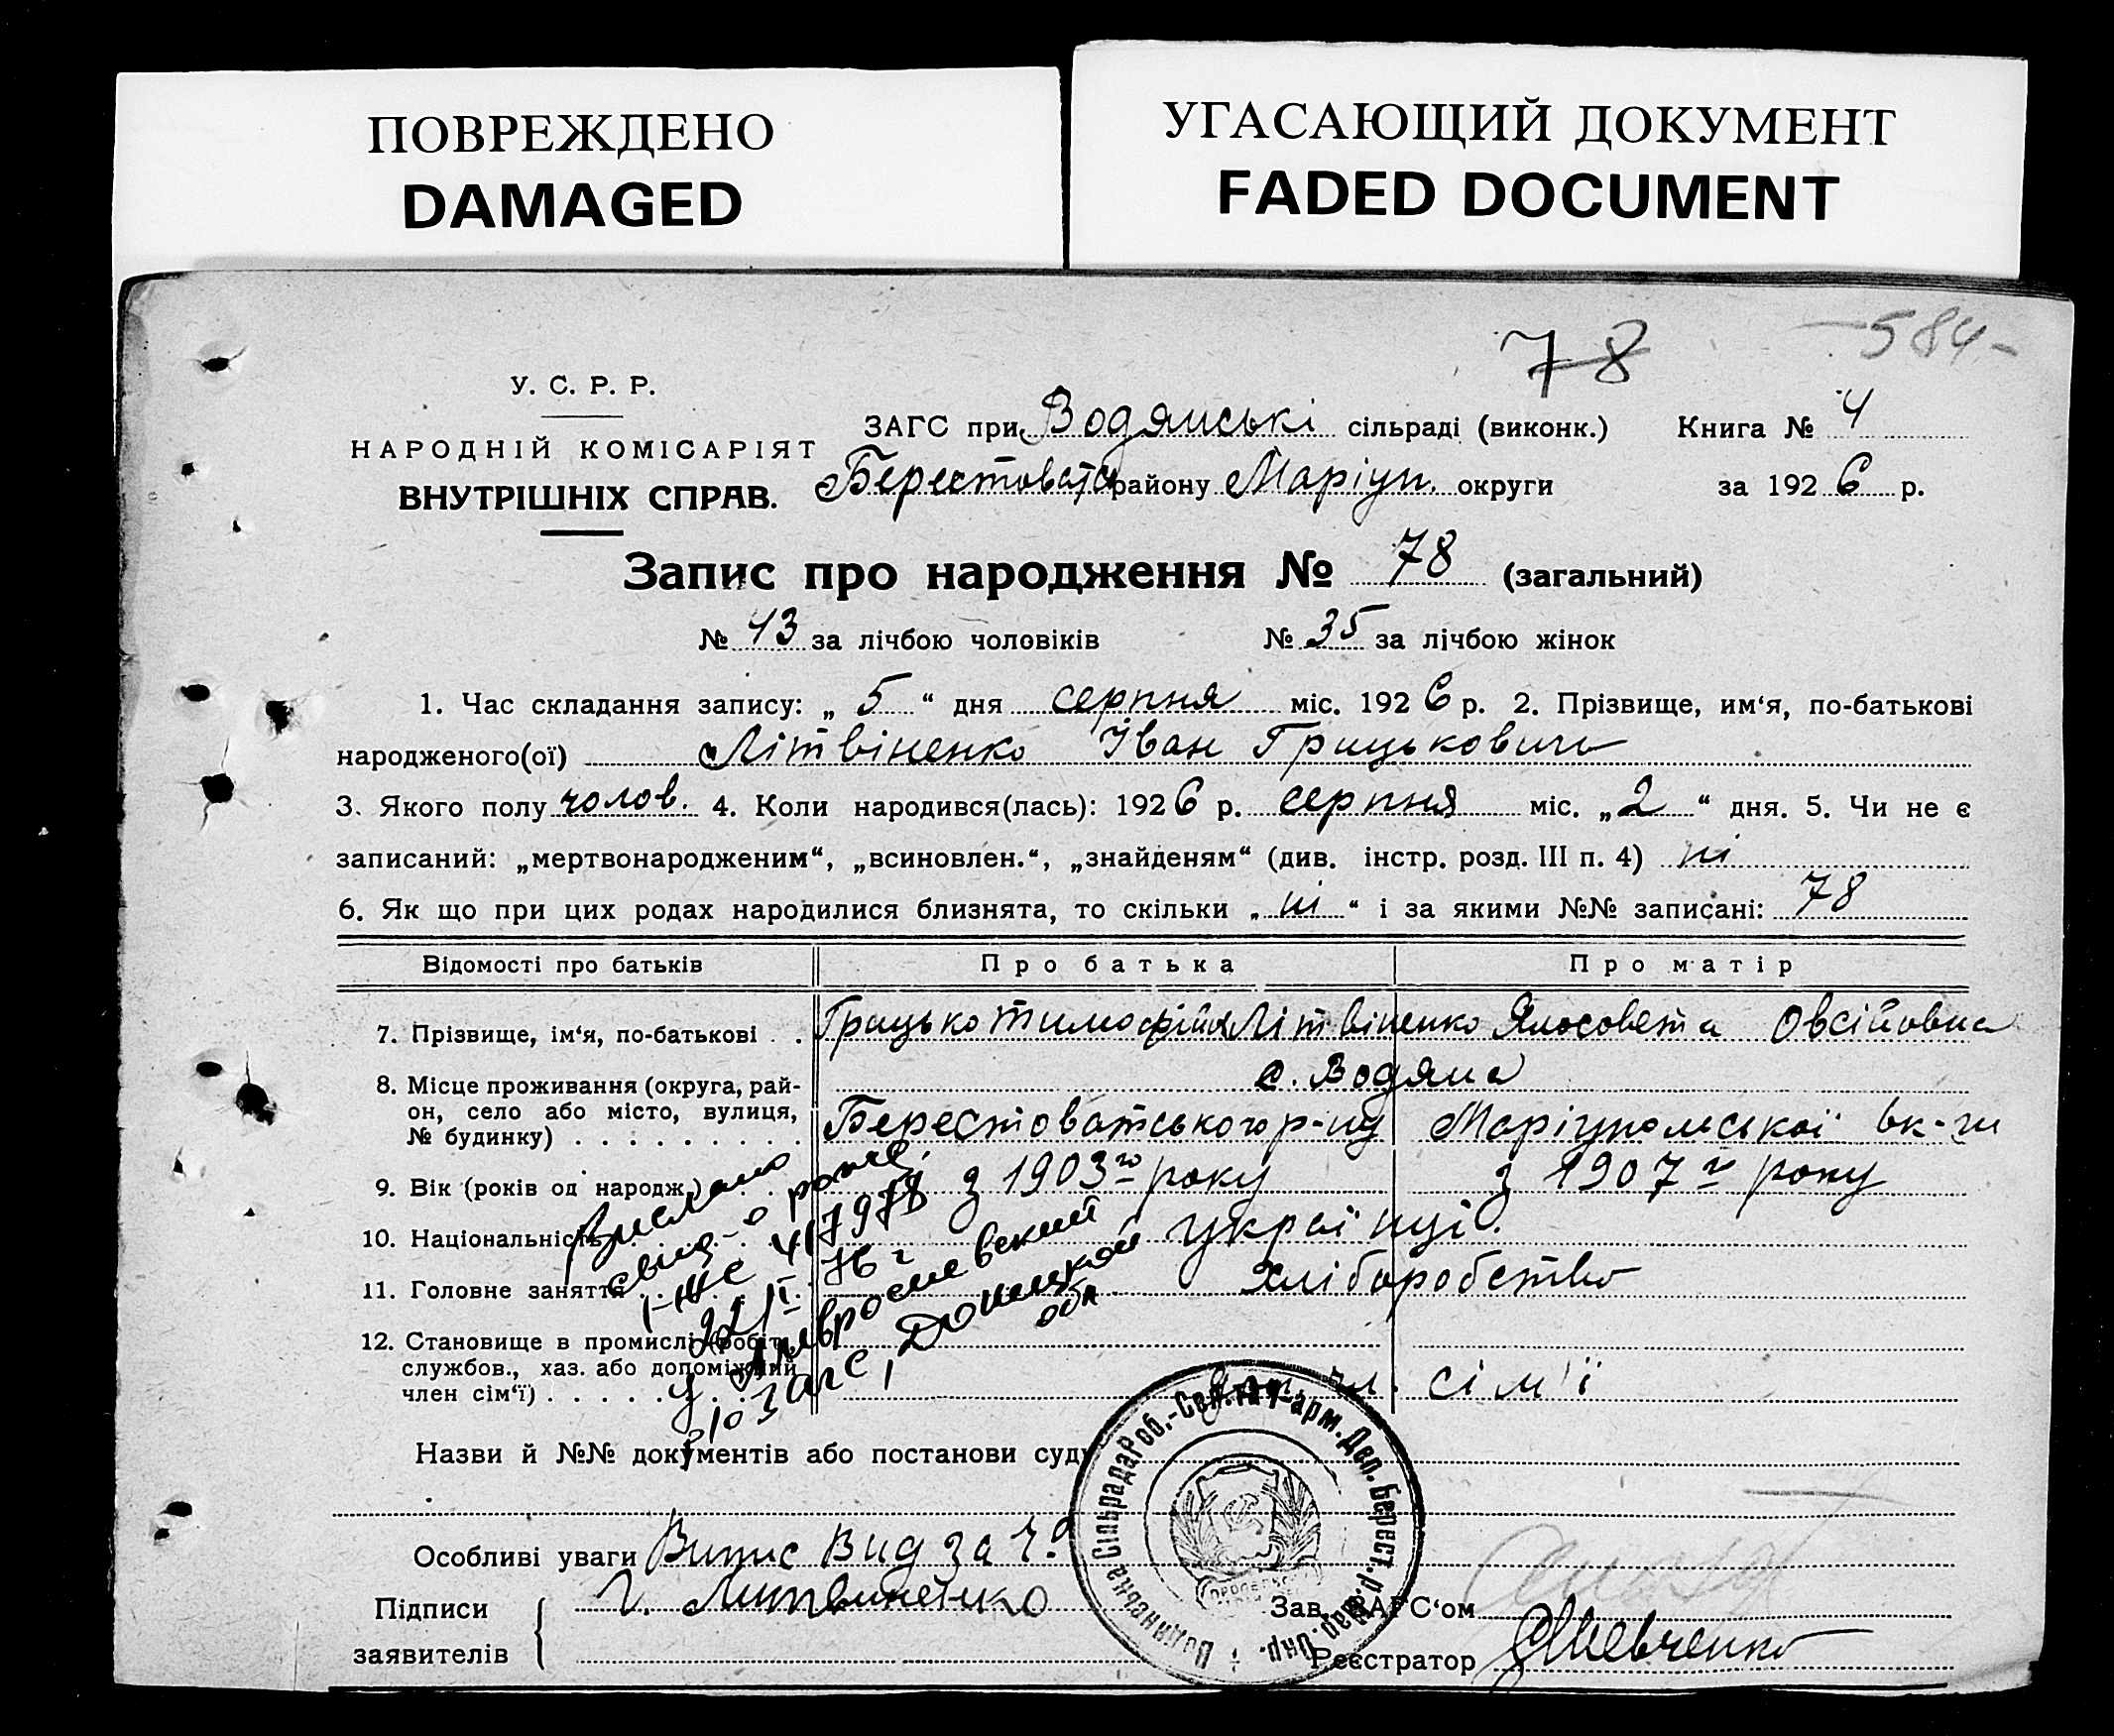 ПОВРЕЖДЕНО
DAMAGED
УГАСАЮЩИЙ ДОКУМЕНТ
FADED DOCUMENT
78
584
У. С. Р. Р.
НАРОДНІЙ КОМІСАРІЯТ
ВНУТРІШНІХ СПРАВ.
ЗАГС при Водянські сільраді (виконк.) Книга № 4
Берестоватс району Маріуп. округи за 1926 р.
Запис про народження № 78 (загальний)
№ 43 за лічбою чоловіків № 35 за лічбою жінок
1. Час складання запису: „ 5 “ дня серпня міс. 1926 р. 2. Прізвище, им‘я, по-батькові
народженого(ої) Літвіненко Іван Грицькович
3. Якого полу чолов. 4. Коли народився(лась): 1926 р. серпня міс. „2“ дня. 5. Чи не є
записаний: „мертвонародженим“, „всиновлен.“, „знайденям“ (див. інстр. розд. III п. 4) ні
6. Як що при цих родах народилися близнята, то скільки „ ні “ і за якими №№ записані: 78
Відомості про батьків Про батька Про матір
7. Прізвище, ім‘я, по-батькові . . Грицько Тимофійов Літвіненко Ялосовета Овсійовна
8. Місце проживання (округа, рай-
он, село або місто, вулиця,
№ будинку) . . . . . . . . .
с. Водяна
Берестоватського р-ну Маріупольської вк-ги
9. Вік (років од народж.) з 1903го року з 1907го року
10. Національність українці.
11. Головне заняття хліборобство
12. Становище в промислі (робіт.,
службов., хаз. або допоміжний
член сім‘ї) . . . . . доп. чл. сім'ї
Выслано
свид-о о рожд.
I-ЖС 417978
22/I 76 г
Донецкой
обл
ЗАГС,
Назви й №№ документів або постанови суду
Особливі уваги Випис вид за ч.
Підписи
заявителів
Г. Литвиненко
Зав. ЗАГС‘ом
Реєстратор Шевченко
Водянська СільрадаРоб.-Сел. та Ч-арм. Деп. Берест. р. Мар. Окр.